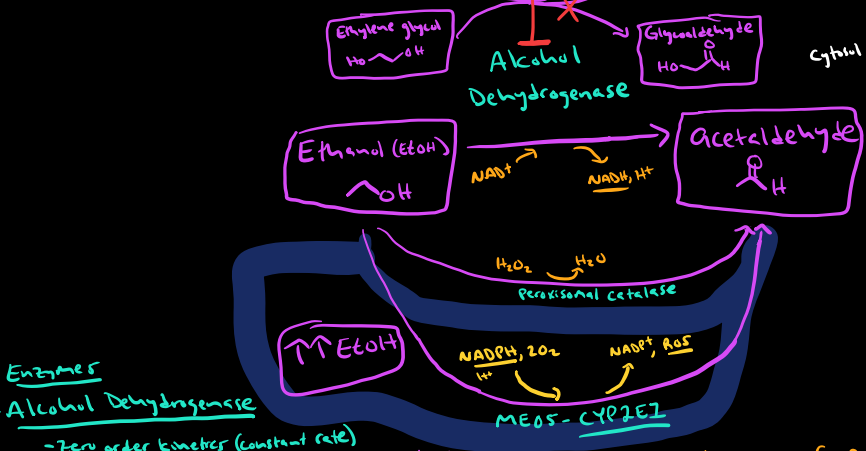 Ethylene glycol
HO OH
Alcohol
Dehydrogenase
Glycoaldehyde
O
HO H
Cytosol
Ethanol (EtOH)
OH
NAD+
NADH, H+
acetaldehyde
O
H
H2O2
H2O
Peroxisomal catalase
↑↑ EtOH
NADPH, 2O2
H+
NADP+, ROS
MEOS - CYP2E1
Enzymes
- Alcohol Dehydrogenase
- Zero order kinetics (constant rate)